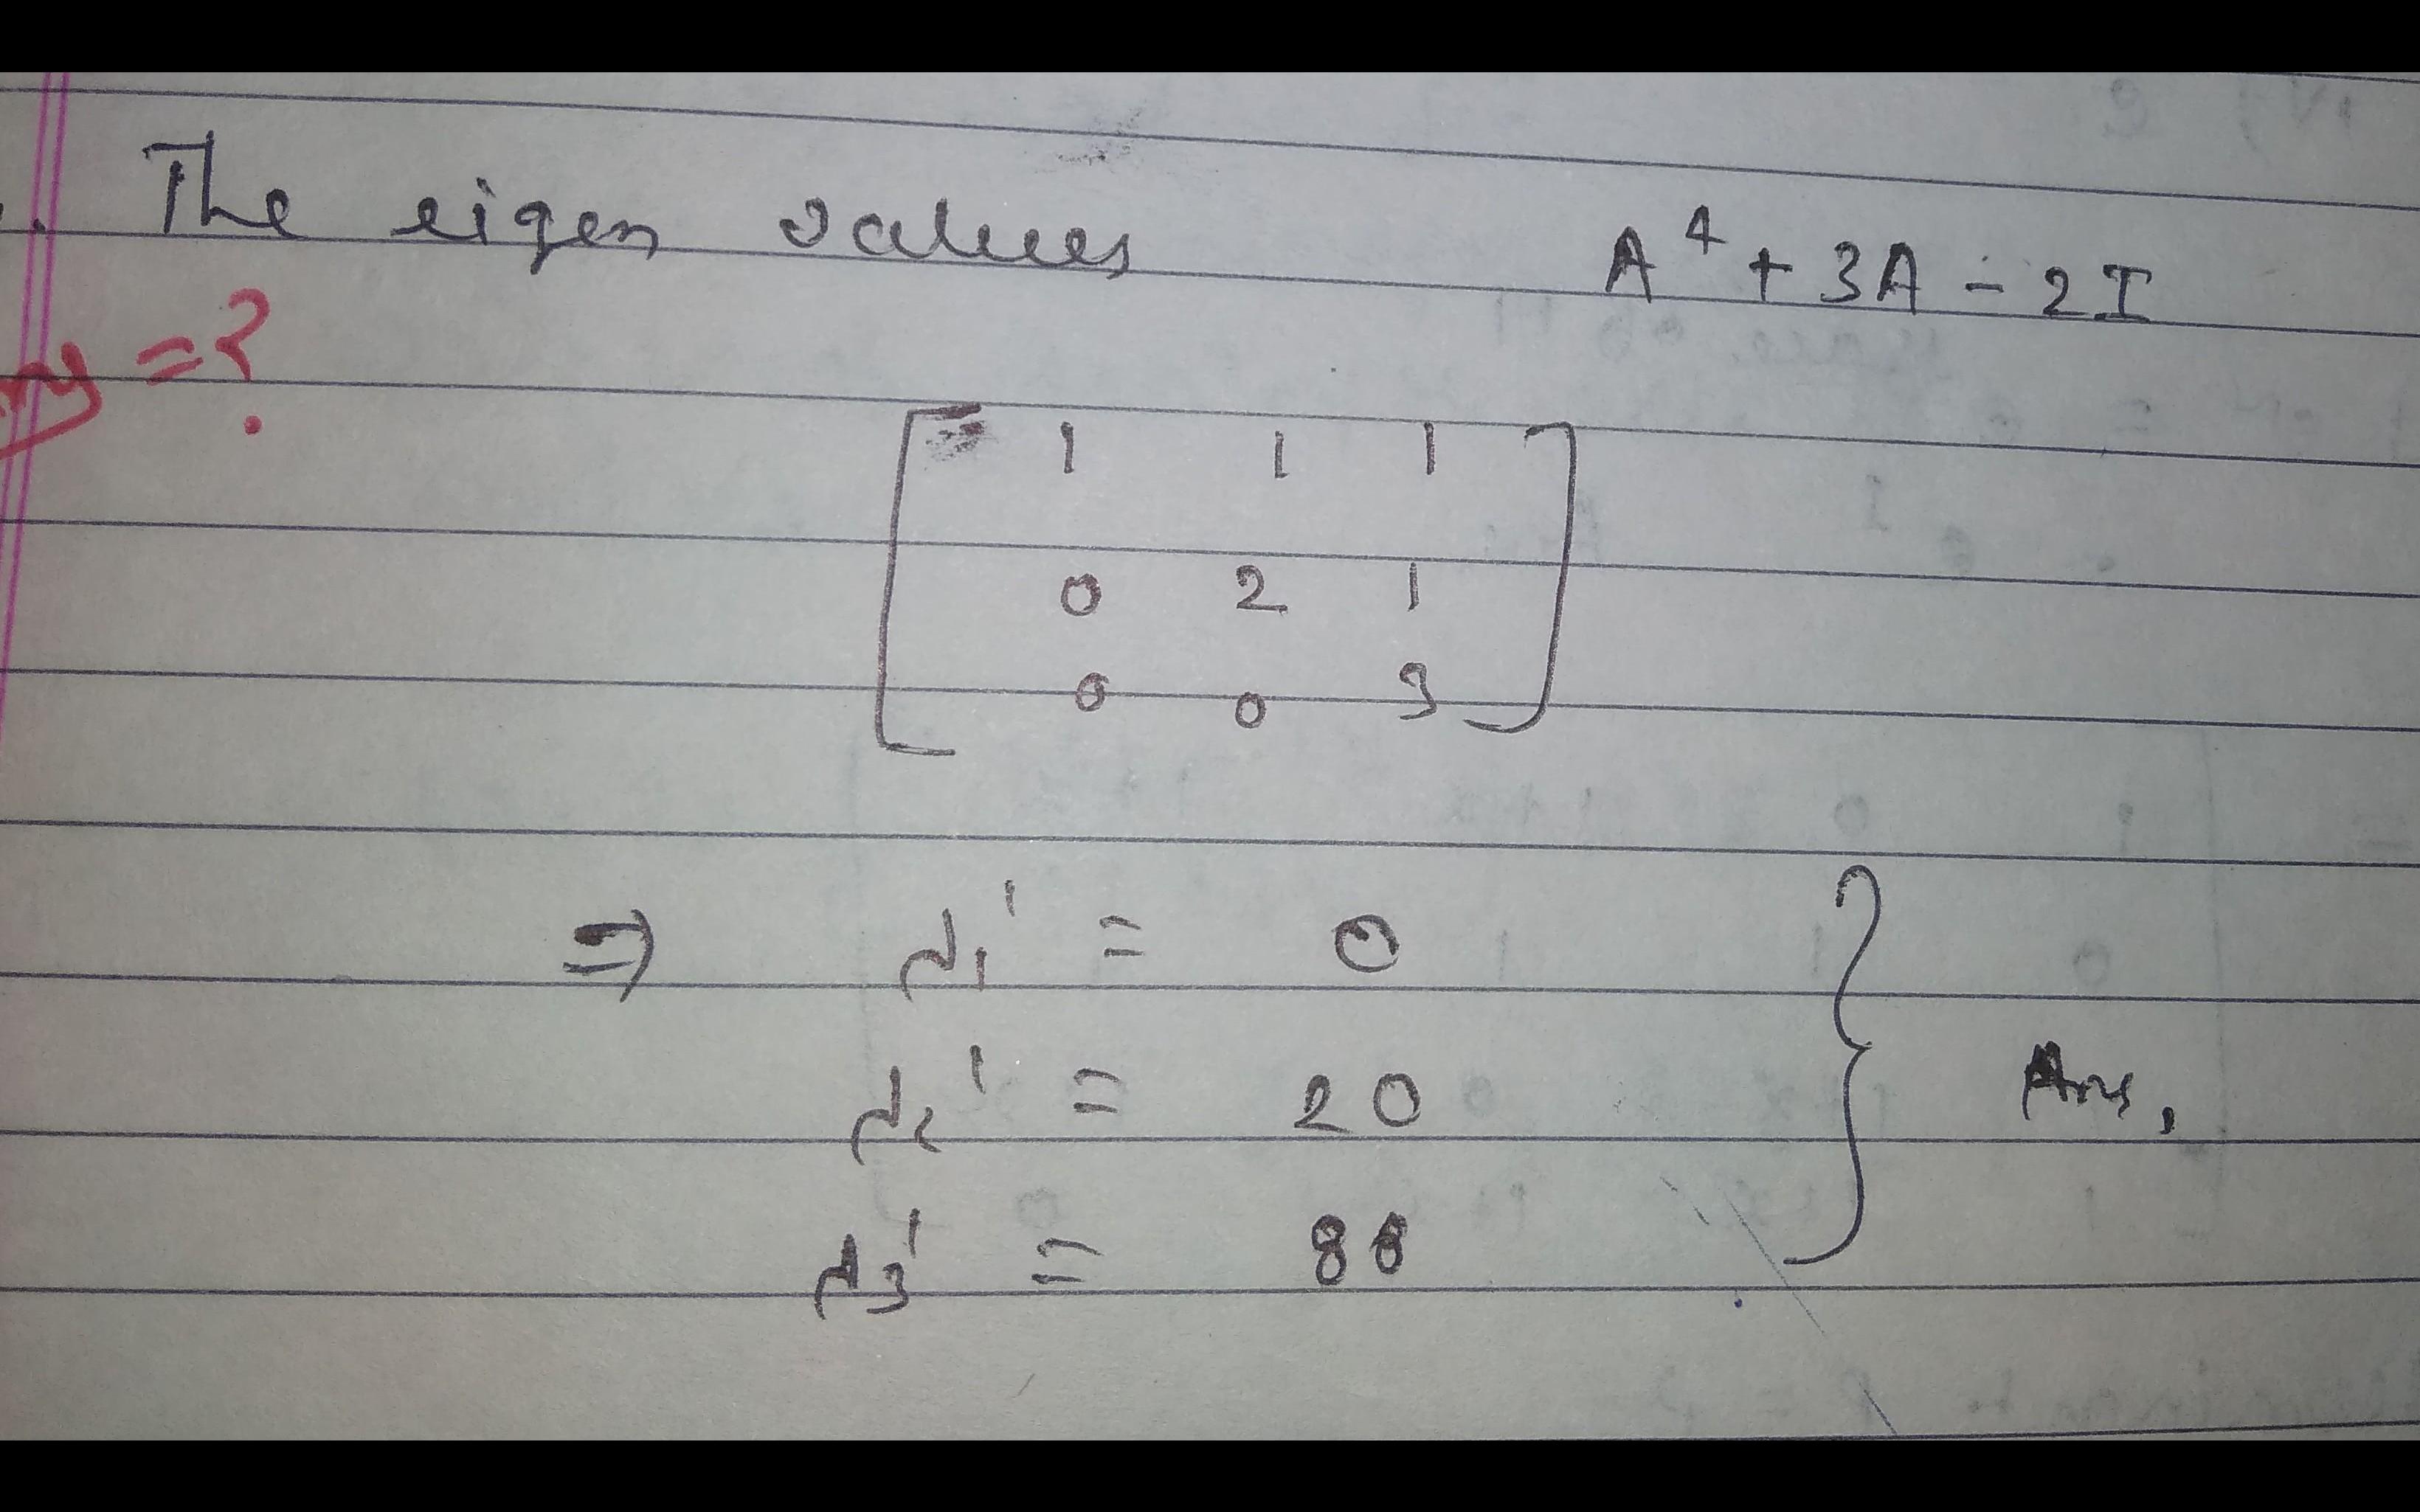 The eigen values A⁴ + 3A - 2I
= ?
1 1 1
0 2 1
0 0 3
⇒ λ₁' = 0
λ₂' = 20
λ₃' = 88
Ans,